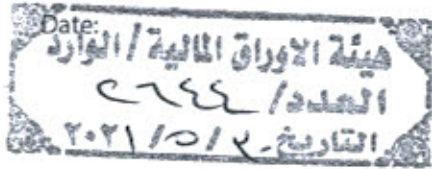 Date:
هيئة الاوراق المالية / الوارد
العدد / ٢٦٤٤
التاريخ ٣٠ / ٥ / ٢٠٢١